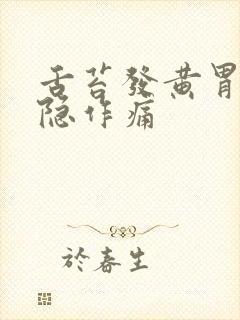 舌苔發黄胃
隐作痛
於春生